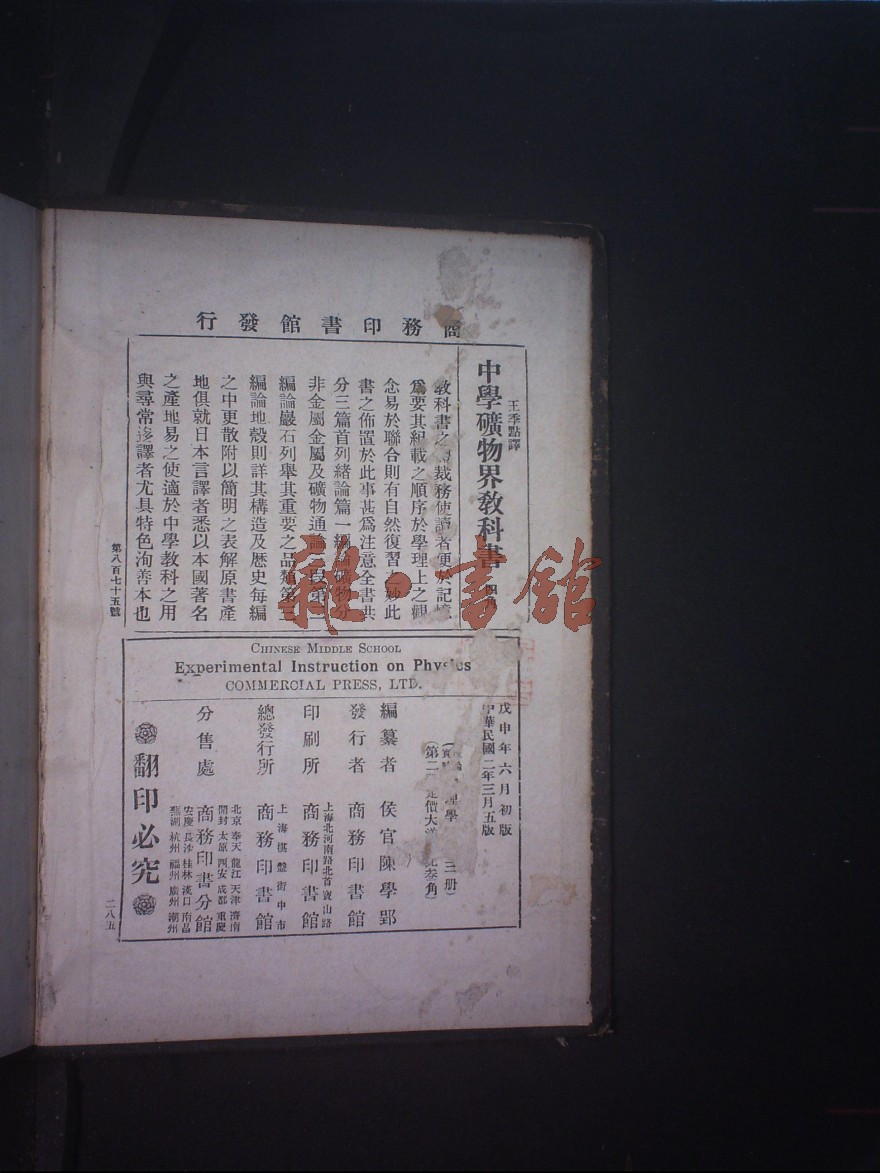 商務印書館發行
王季點譯
中學礦物界教科書
教科書之 裁務使讀者便於記憶
爲要其紀載之順序於學理上之觀
念易於聯合則有自然復習之妙此
書之佈置於此事甚爲注意全書共
分三篇首列緒論篇一編論礦物分
非金屬金屬及礦物通論三段第二
編論巖石列舉其重要之品類第三
編論地殼則詳其構造及歷史每編
之中更散附以簡明之表解原書產
地俱就日本言譯者悉以本國著名
之產地易之使適於中學教科之用
與尋常迻譯者尤具特色洵善本也
第八百七十五號
雜·書館
CHINESE MIDDLE SCHOOL
Experimental Instruction on Physics
COMMERCIAL PRESS, LTD.
戊申年六月初版
中華民國二年三月五版
理學 二冊
(第二 定價大洋 叁角)
編纂者 侯官陳學郢
發行者 商務印書館
上海北河南路北首寶山路
印刷所 商務印書館
上海棋盤街中市
總發行所 商務印書館
北京 奉天 龍江 天津 濟南
開封 太原 西安 成都 重慶
分售處 商務印書分館
安慶 長沙 桂林 漢口 南昌
蕪湖 杭州 福州 廣州 潮州
翻印必究
二八五